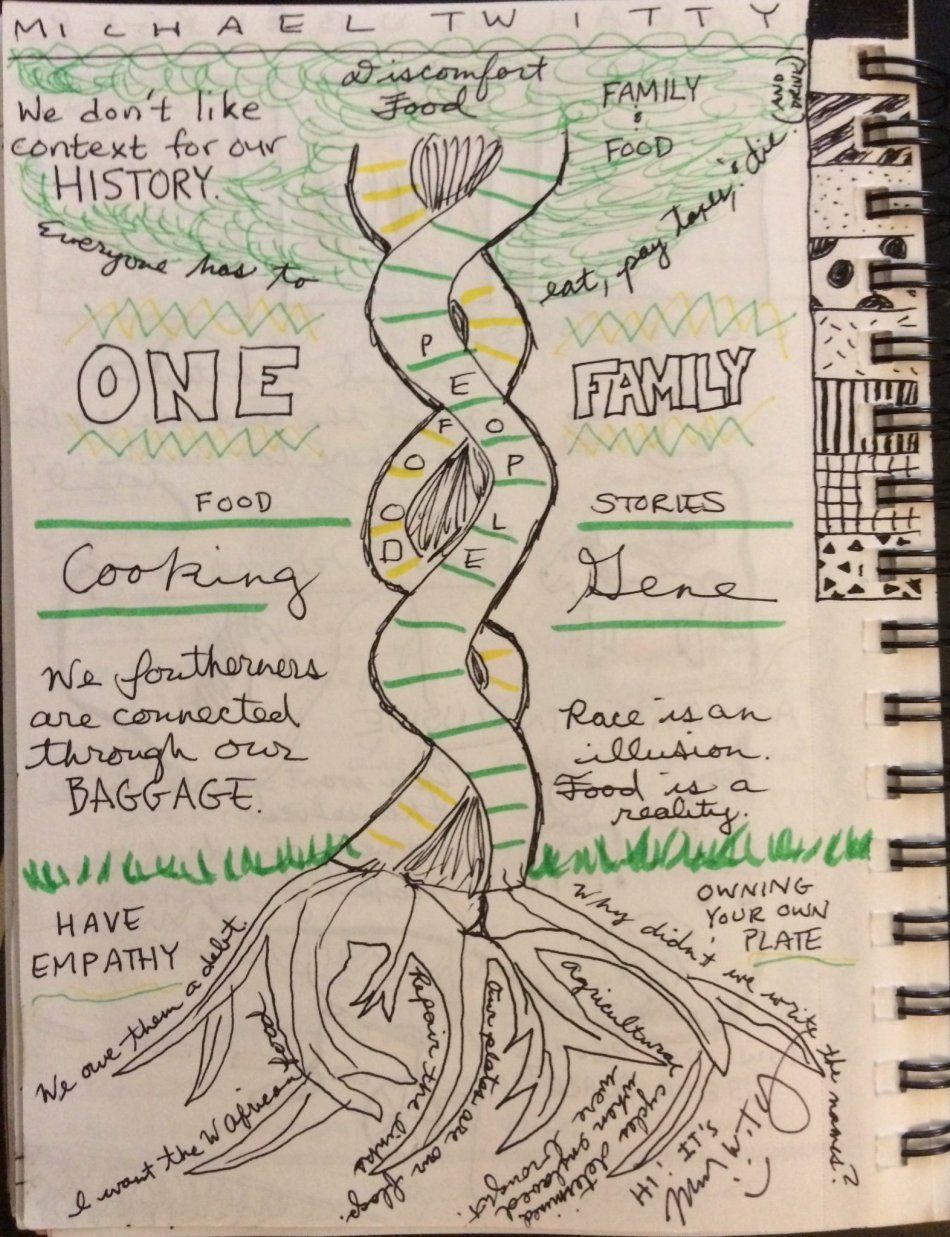 MICHAEL TWITTY
Discomfort
Food
We don't like
context for our
HISTORY.
FAMILY
&
FOOD
Everyone has to
eat, pay taxes, & die. (AND DRINK)
ONE
FAMILY
PEOPLE
FOOD
FOOD
STORIES
Cooking
Gene
We southerners
are connected
through our
BAGGAGE.
Race is an
illusion.
Food is a
reality.
HAVE
EMPATHY
OWNING
YOUR OWN
PLATE
We owe them a debt.
I want the W African
Repair the links
Our plates are our flag.
Agricultural cycles determined
when enslaved
were brought.
Why didn't we write the names?